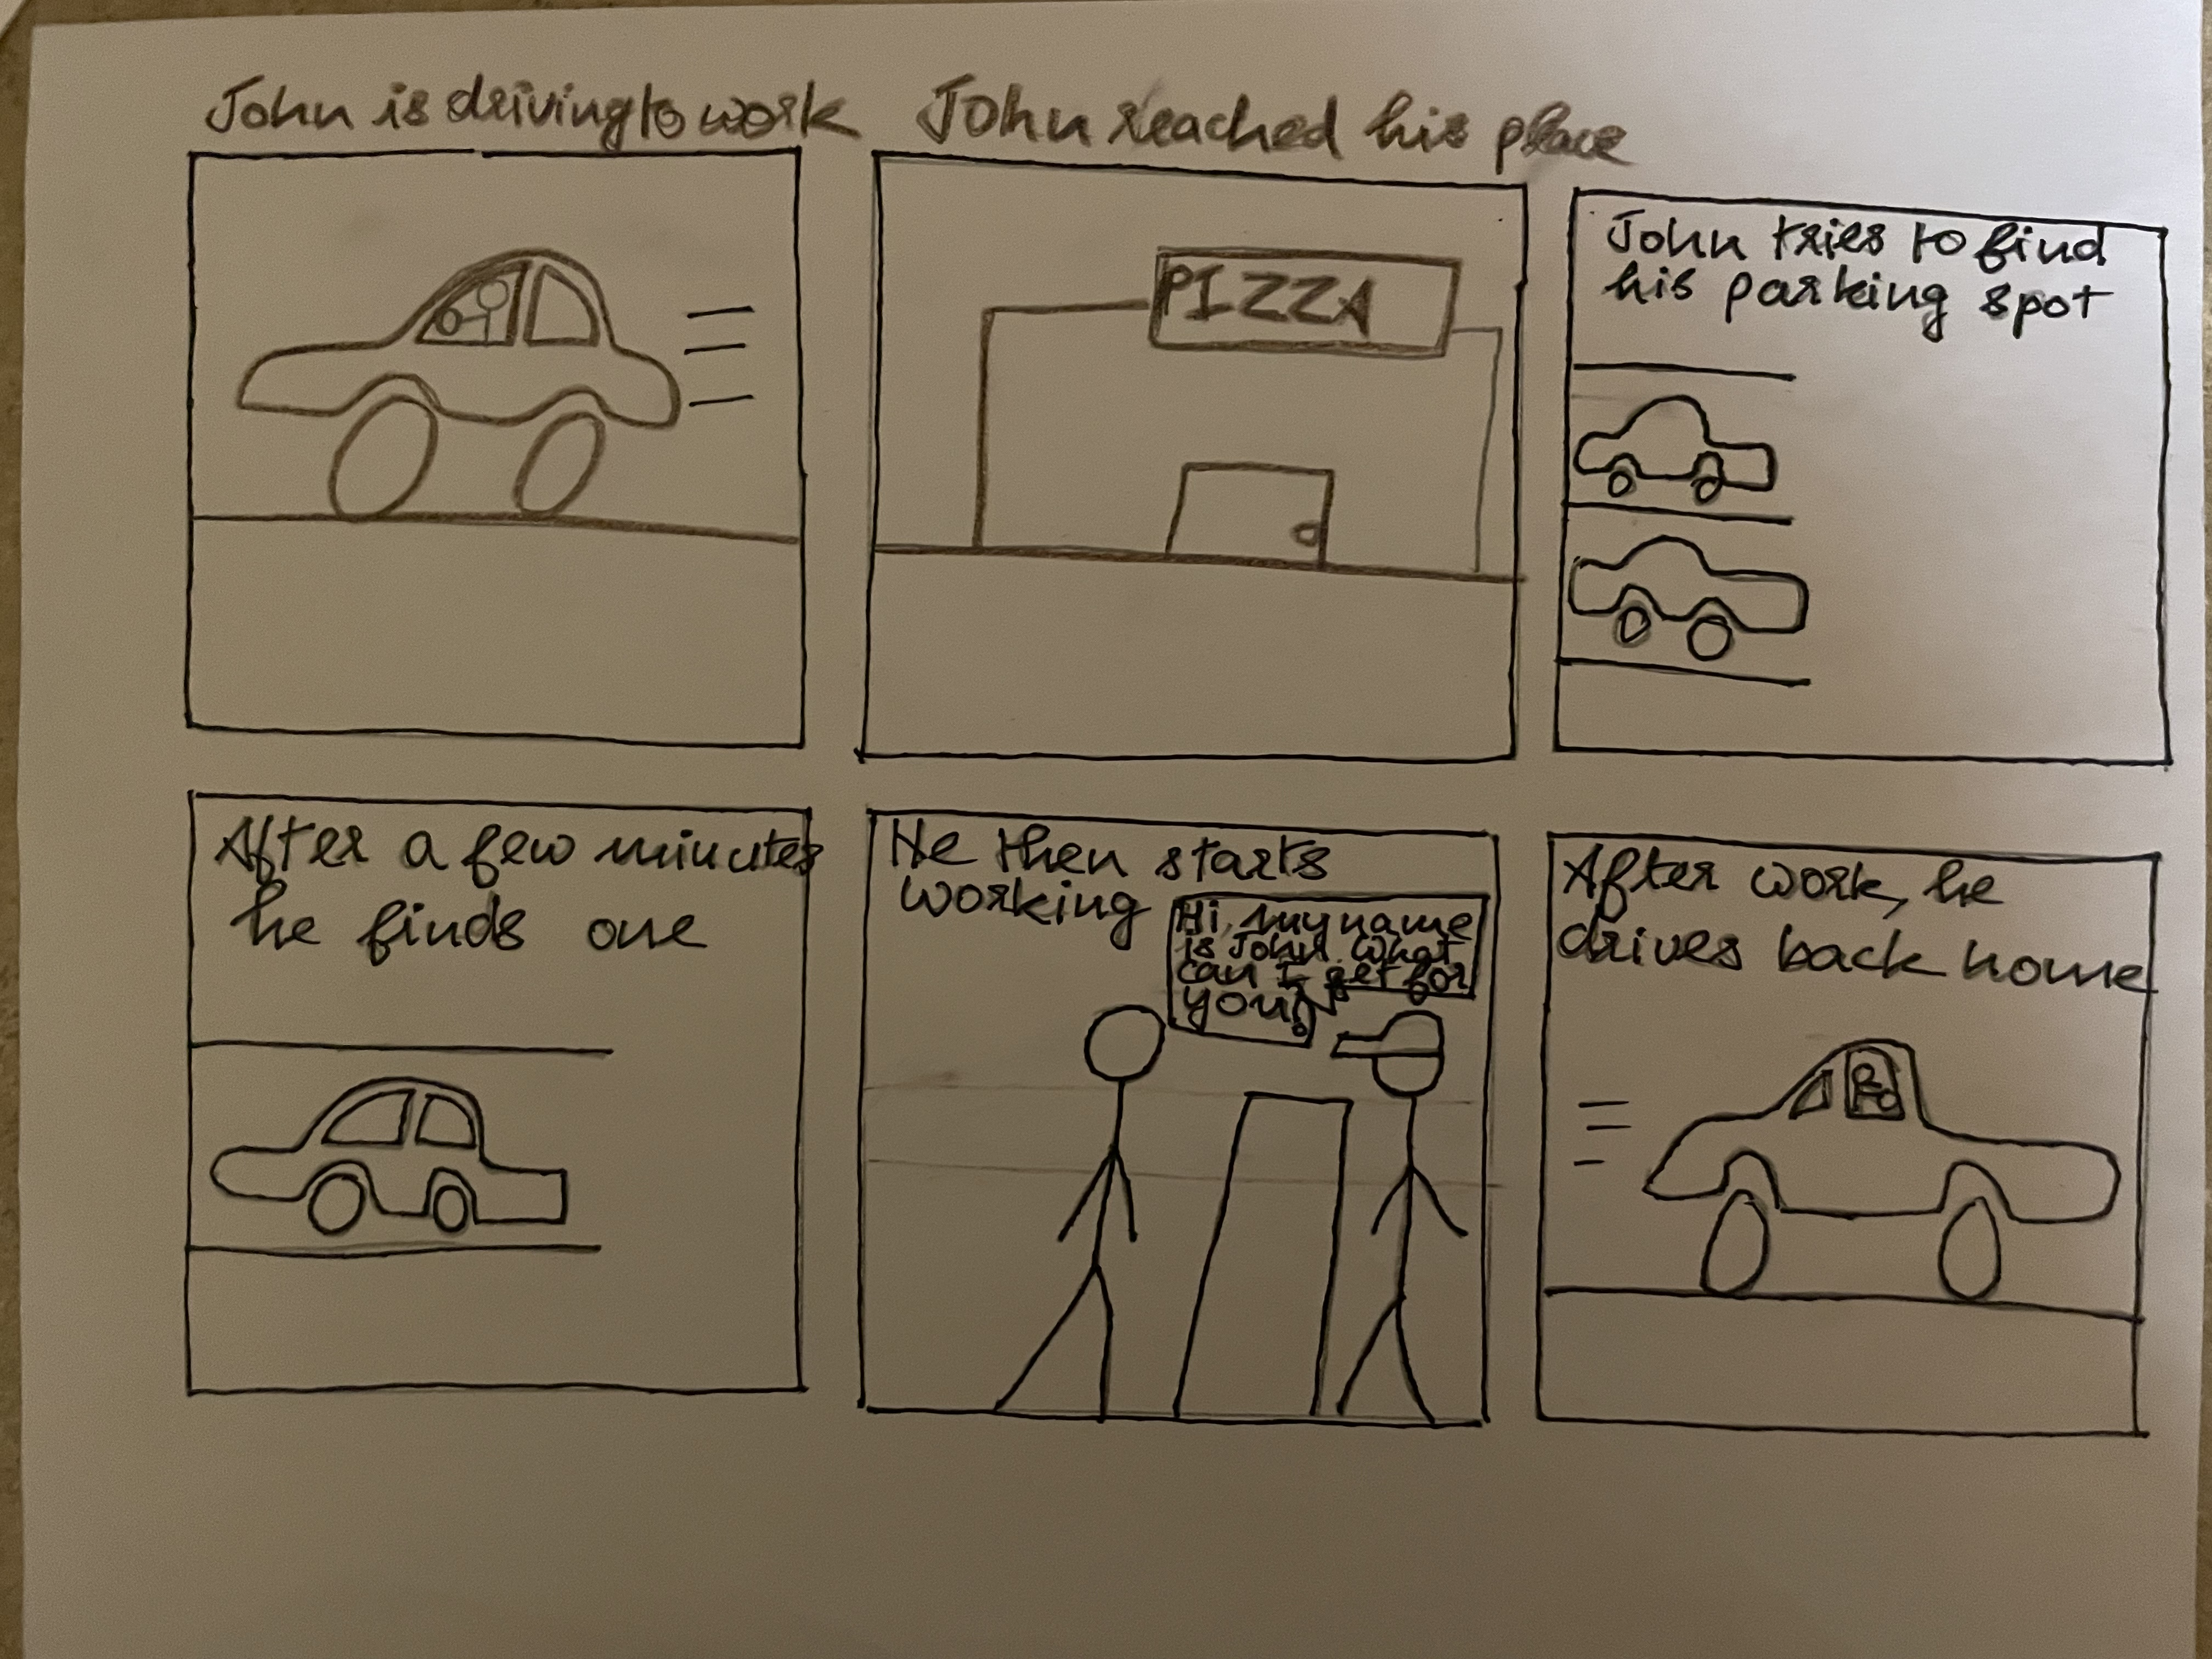 John is driving to work
John reached his place
PIZZA
John tries to find
his parking spot
After a few minutes
he finds one
He then starts
working
Hi, my name
is John what
can I get for
you?
After work, he
drives back home